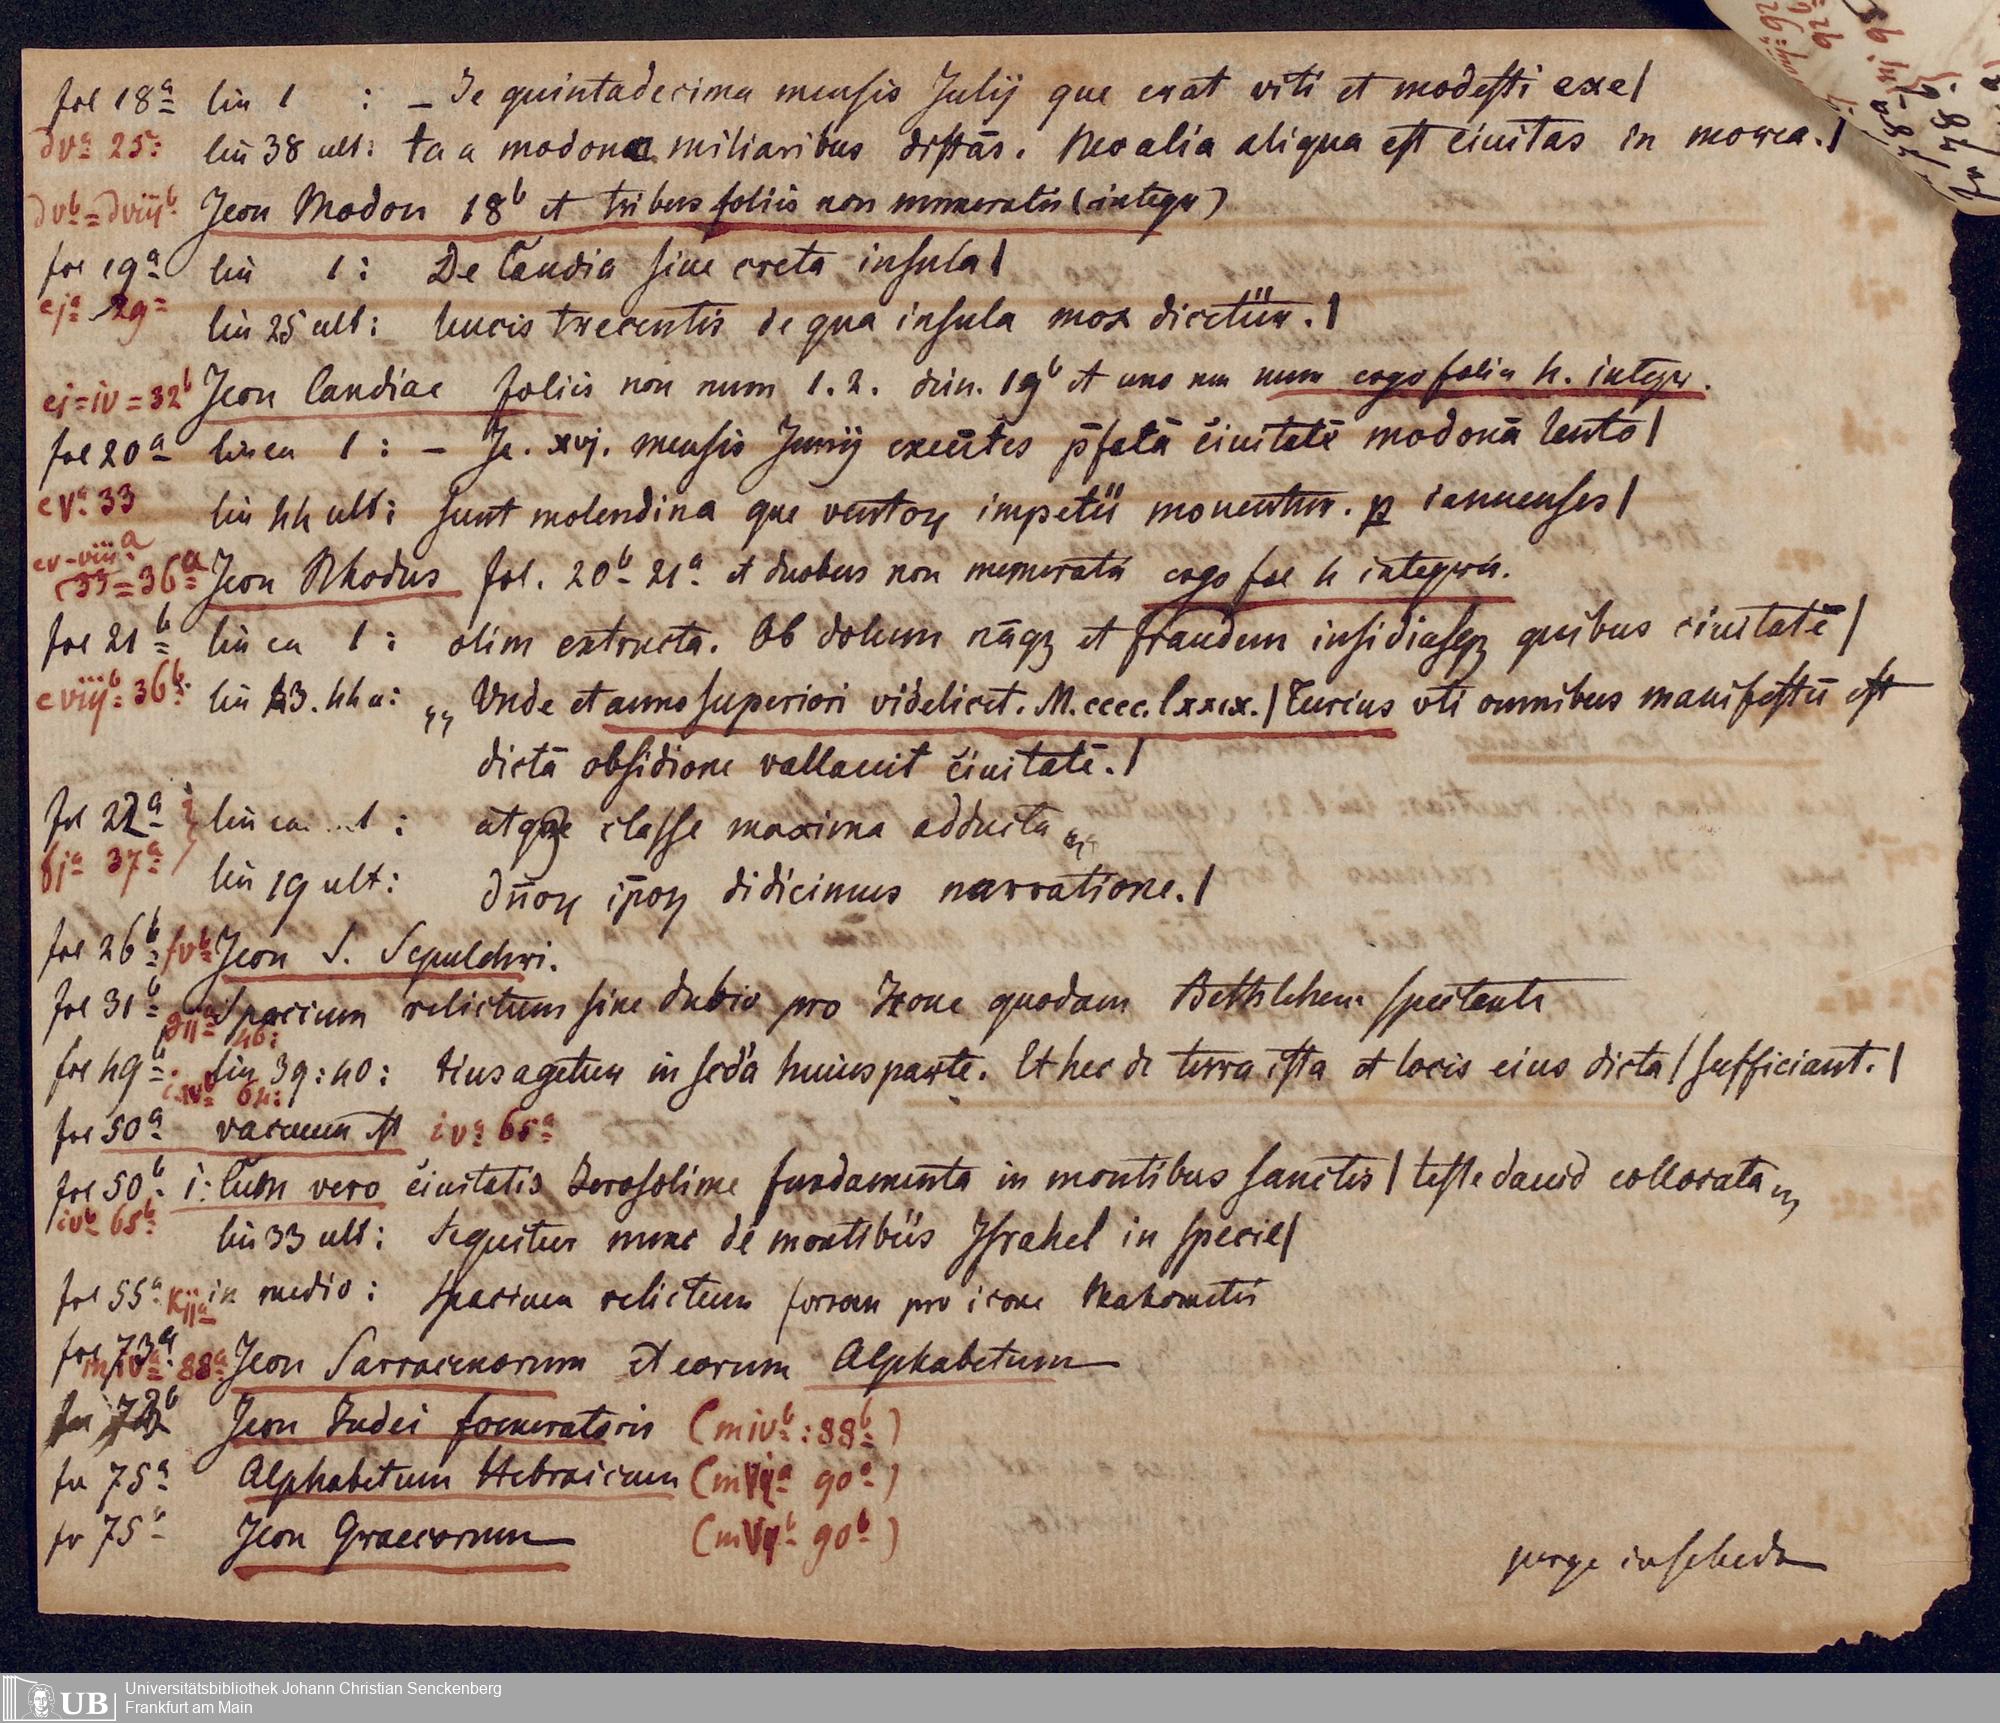 fol 18ª lin 1 : – Ie quintadecima mensis Julij que erat viti et modesti exe|
dvª 25: lin 38 ult: ta a modona miliaribus distās. Mo alia aliqua est ciuitas in morea.|
dvᵇ = dviijᵇ Icon Modon 18ᵇ et tribus foliis non numeratis (integr)
fol 19ª lin 1: De Candia siue creta insula|
ejª 29= lin 25 ult: leucis trecentis de qua insula mox dicetur.|
ej=iv=32ᵇ Icon Candiae foliis non num 1. 2. 19ᵇ et uno non num ergo foliis 4. integr.
fol 20ª linea 1: – Ie. xvj. mensis Junij exeūtes p̄fatā ciuitatē modonā lento|
evª 33 lin 44 ult: sunt molendina que ventoꝝ impetu mouentur. ꝑ ianuenses|
ev-viiiª (33=36ª Icon Rhodus fol. 20ᵇ 21ª et duobus non numeratis ergo fol 4 integris.
fol 21ᵇ linea 1: olim extructa. Ob dolum nāqꝫ et fraudem insidiasqꝫ quibus ciuitatē|
eviijᵇ 36ᵇ lin 43. 44 a: „ Unde et anno superiori videlicet. M.cccc.lxxix.| Turcus vti omnibus manifestū est
dictā obsidione vallauit ciuitatē.|
fol 22ª linea 1: atqꝫ classe maxima adducta„
fjª 37ª lin 19 ult: dn̄oꝝ ip̄oꝝ didicimus narratione.|
fol 26ᵇ fvᵇ Icon S. Sepulchri.
fol 31ᵇ gijª 46: Spacium relictum sine dubio pro Icone quodam Bethlehem spectante
fol 49ᵇ. lin 39:40: tius agetur in scd̄a huius parte. Et hec de terra ista et locis eius dicta| sufficiant.|
ivᵇ 64:
fol 50ª vacuum est ivª 65ª
fol 50ᵇ 1: Cum vero ciuitatis Ierosolime fundamenta in montibus sanctis| teste dauid collocata„
ivᵇ 65ᵇ lin 33 ult: Sequitur nunc de montibus Israhel in specie|
fol 55ª Kijª in medio: spacium relictum forsan pro icone Mahometis
fol 73ª mivª 88ª Icon Sarracenorum et eorum Alphabetum
73ᵇ Icon Judei foeneratoris (mivᵇ: 88ᵇ)
fol 75ª Alphabetum Hebraicum (mvjª 90ª)
fo 75ᵇ Icon Graecorum (mvjᵇ 90ᵇ)
perge in scheda
UB
Universitätsbibliothek Johann Christian Senckenberg
Frankfurt am Main